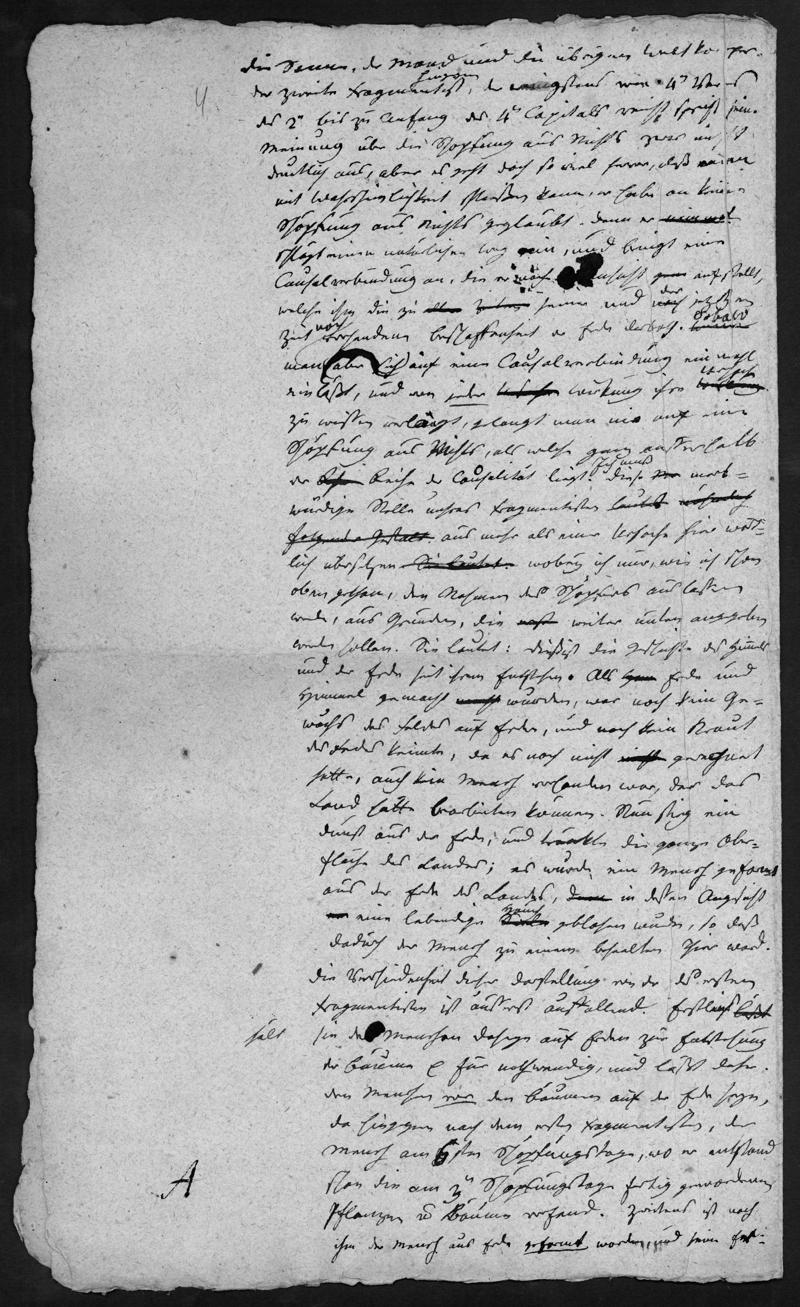 die Sonne, der Mond und die übrigen Weltkörper.
4.
hingegen
der zweite Fragmentist, der wenigstens vom 4n Vers
des 2n bis zu Anfang des 4n Capitels reicht spricht seine
Meinung über die Schöpfung aus Nichts zwar nicht
deutlich aus, aber es geht doch so viel hervor, daß man
mit Wahrscheinlichkeit schließen kann, er habe an keine
Schöpfung aus Nichts geglaubt. Denn er
schlägt einen natürlichen Weg ein, und bringt eine
Causalverbindung an, die er nach aufstellt,
welche ihm die zu seiner und der jetzigen
Zeit vorhandene Beschaffenheit der Erde darbot. Sobald
man aber sich auf eine Causalverbindung einmahl
einläßt, und von jeder Wirkung ihre Ursache
zu wissen verlangt, gelangt man nie auf eine
Schöpfung aus Nichts, als welche ganz außerhalb
der Reihe der Causalität liegt. Ich muß diese merk-
würdige Stelle unsres Fragmentisten
aus mehr als einer Ursache hier wört-
lich übersetzen wobey ich nur, wie ich schon
oben gethan, den Nahmen des Schöpfers auslassen
werde, aus Gründen, die weiter unten angegeben
werden sollen. Sie lautet: dieß ist die Geschichte des Himmels
und der Erde seit ihrem Entstehen. Als Erde und
Himmel gemacht wurden, war noch kein Ge-
wächs des Feldes auf Erden, und noch kein Kraut
des Feldes keimte, da es noch nicht geregnet
hatte, auch kein Mensch vorhanden war, der das
Land hätte bearbeiten können. Nun stieg ein
Dunst aus der Erde, und tränkte die ganze Ober-
fläche des Landes; es wurde ein Mensch geformt
aus der Erde des Landes, in dessen Angesicht
eine lebendige Hauch geblasen wurde, so daß
dadurch der Mensch zu einem beseelten Thier ward.
Die Verschiedenheit dieser Darstellung von der des ersten
Fragmentisten ist äusserst auffallend. Erstlich
hält
sie des Menschen Daseyn auf Erden zur Entstehung
der Bäume für nothwendig, und läßt daher
den Menschen vor den Bäumen auf der Erde seyn,
da hingegen nach dem ersten Fragmentisten, der
Mensch am 6ten Schöpfungstage, wo er entstand
schon die am 3n Schöpfungstage fertig gewordenen
A
Pflanzen u Bäume vorfand. Zweitens ist nach
ihm der Mensch aus Erde geformt worden, und seine